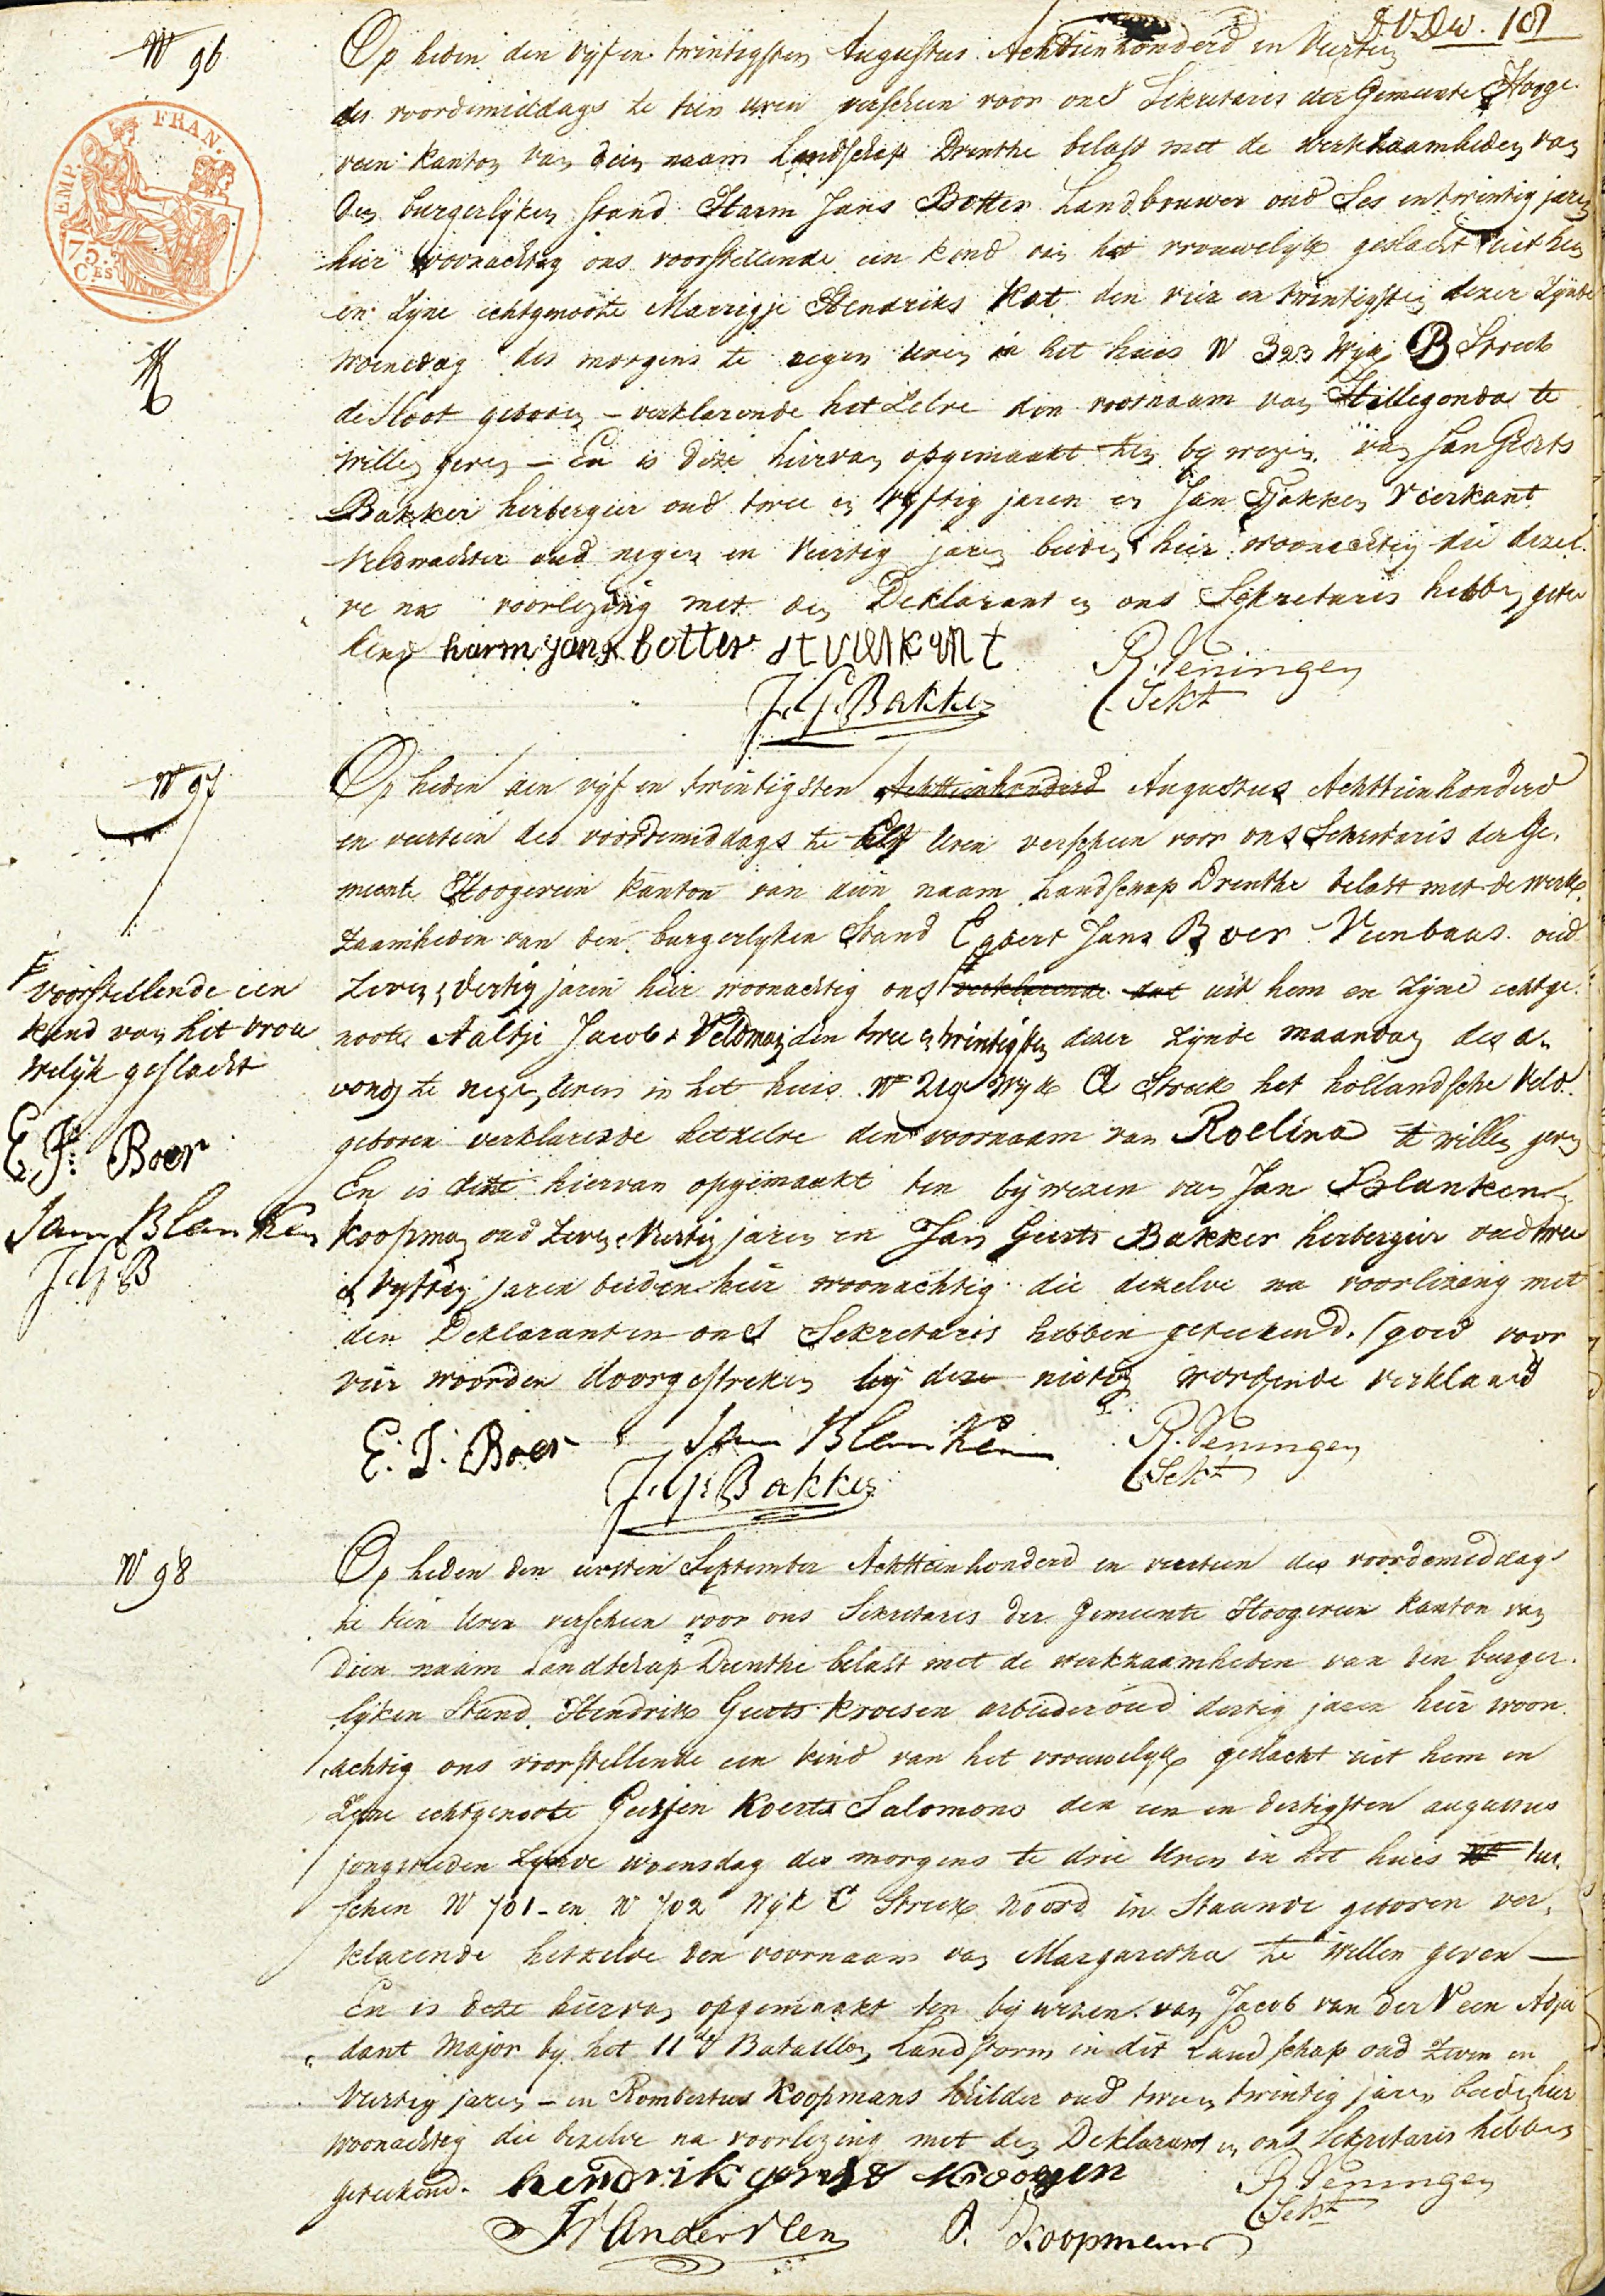 N 96
Op heden den vyf en twintigsten Augustus Achttienhonderd en Veertien
des voordemiddags te tien uren verscheen voor ons Sekretaris der Gemeente Hooge-
veen kanton van dien naam Landschap Drenthe belast met de werkzaamheden van
den burgerlyken stand Harm Jans Botter Landbouwer oud Ses en twintig jaren
hier woonachtig ons voorstellende een kind van het vrouwelyk geslacht uit hem
en Zyne echtgenoote Marrigje Hendriks Kat den vier en twintigsten dezer Zynde
Woensdag des morgens te negen Uren in het huis N 323 Wyk B Streek
de Sloot geboren – verklarende hetzelve den voornaam van Hillegonda te
Willen geven – En is deze hiervan opgemaakt ten bywezen van Jan Geerts
Bakker herbergier oud twee en vyftig jaren en Jan Tjakken Vierkant
Veldwachter oud negen en Veertig jaren beiden hier woonachtig die dezel-
ve na voorlezing met den Deklarant en ons Sekretaris hebben getee
kend harm jans botter J t vierkant
R. Veningen
Sekt
J. G. Bakker
N 97
Op heden den vijf en twintigsten Achttienhonderd Augustus Achttienhonderd
en veertien des voordemiddags te Elf Uren verscheen voor ons Sekretaris der Ge-
meente Hoogeveen kanton van dien naam Landschap Drenthe belast met de werk-
zaamheden van den burgerlyken Stand Egbert Jans Boer Veenbaas oud
Zeven & dertig jaren hier woonachtig ons verklarende dat uit hem en Zyne echtge-
voorstellende een
kind van het vrou
welijk geslacht
E. J. Boer
Jan Blanken
J. G. B
noote Aaltje Jacobs Veldman den twee en twintigsten dezer Zynde maandag des a-
vonds te negen Uren in het huis N Wyk A Streek het hollandsche Veld
geboren verklarende hetzelve den voornaam van Roelina te willen geven
En is deze hiervan opgemaakt ten bywezen van Jan Blanken
koopman oud Zeven & Veertig jaren en Jan Geerts Bakker herbergier oud twee
en Vyftig jaren beiden hier woonachtig die dezelve na voorlezing met
den Deklarant en ons Sekretaris hebben geteekend. (goed voor
vier woorden doorgestreken by deze nietig wordende verklaard
E. J. Boer Jan Blanken R. Veningen
Sekt
J. G. Bakker
N 98
Op heden den eersten September Achttienhonderd en veertien des voordemiddags
te tien Uren verscheen voor ons Sekretaris der Gemeente Hoogeveen kanton van
dien naam Landschap Drenthe belast met de werkzaamheden van den burger-
lyken Stand Hendrik Geerts Kroesen arbeider oud dertig jaren hier woon-
achtig ons voorstellende een kind van het vrouwelyk geslacht uit hem en
Zyne echtgenoote Geesjen Koerts Salomons den een en dertigsten augustus
jongstleden Zynde woensdag des morgens te drie Uren in het huis N tus-
schen N 701 en N 702 Wyk C Streek Noord in Staande geboren ver-
klarende hetzelve den voornaam van Margaretha te willen geven —
En is deze hiervan opgemaakt ten bywezen van Jacob van der Veen Adju
dant Major by het 11de Bataillon Landstorm in dit Landschap oud Zeven en
Veertig jaren – en Rombertus Koopmans Schilder oud twee en twintig jaren beiden hier
woonachtig die dezelve na voorlezing met den Deklarant en ons Sekretaris hebben
geteekend. hendrik geerts kroesen R. Veningen
Sekt
J V an der Veen R. Koopmans
EMP. FRAN.
75.
C.ES